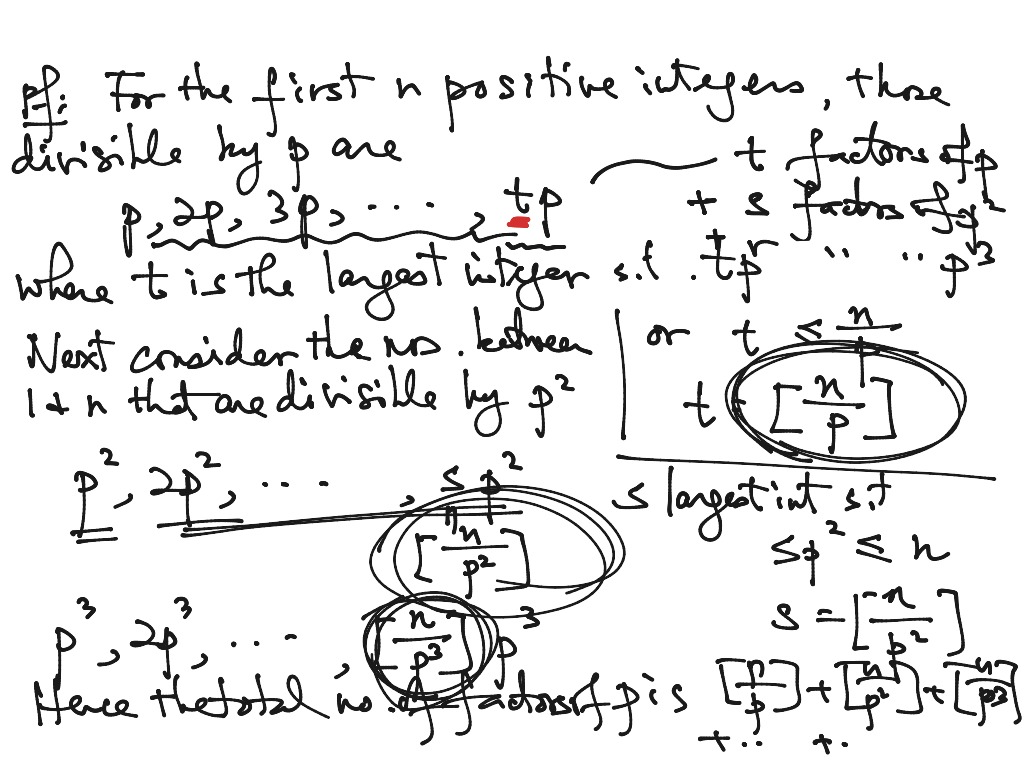 Pf: For the first n positive integers, those
divisible by p are
t factors of p
p, 2p, 3p, ....., tp
+ s factors of p²
+ r " " p³
where t is the largest integer s.t. tp
or t ≤ n/p
t = [n/p]
Next consider the nos. between
1 & n that are divisible by p²
p², 2p², ... , sp²
[n/p²]
s largest int s.t
sp² ≤ n
s = [n/p²]
p³, 2p³, ... , [n/p³] p³
Hence the total no. of factors of p is [n/p] + [n/p²] + [n/p³]
+ .. +.